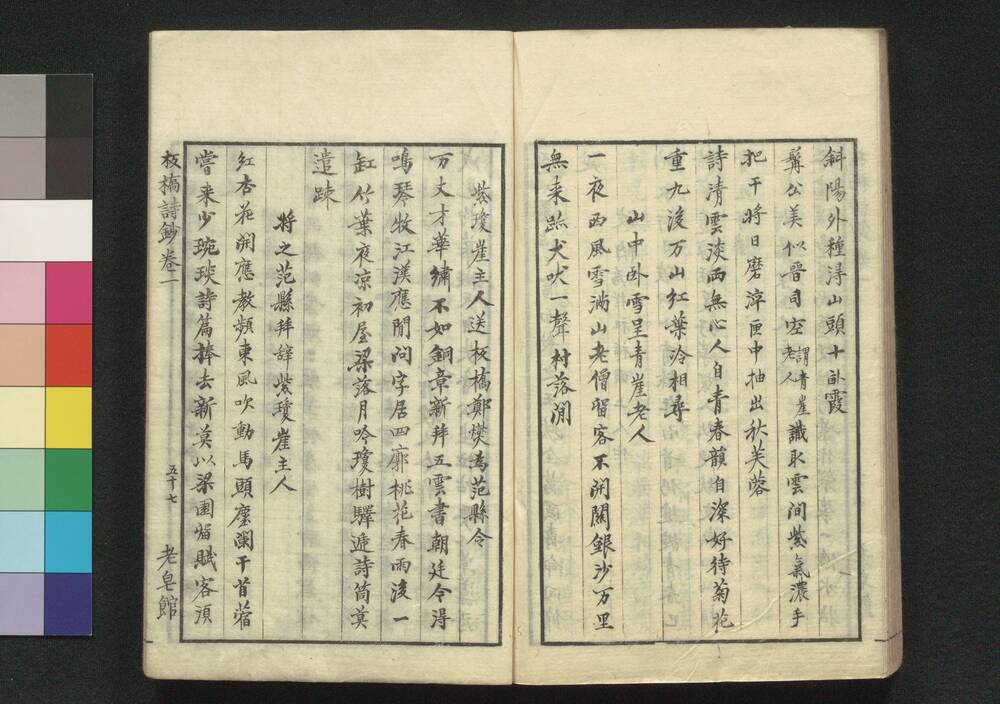 斜陽外種淂山頭十畝霞
髯公美似晉司空謂青崖老人識取雲间紫氣濃手
把干將日磨淬匣中抽出秋芙蓉
詩清雲淡两無心人自青春韻自深好待菊花
重九後万山红葉冷相尋
山中卧雪呈青崖老人
一夜西風雪满山老僧留客不开關銀沙万里
無来跡犬吠一聲村落间
紫瓊崖主人送板橋鄭燮為范縣令
万丈才華繡不如銅章新拜五雲書朝廷今淂
鳴琴牧江漢應閒问字居四廓桃花春雨後一
缸竹葉夜凉初屋梁落月吟瓊樹驛遞詩筒莫
遣踈
将之范縣拜辞紫瓊崖主人
红杏花開應教頻東風吹動馬頭塵闌干苜蓿
嘗来少琬琰詩篇捧去新莫以梁園留賦客湏
板橋詩鈔卷一
五十七
老皂館